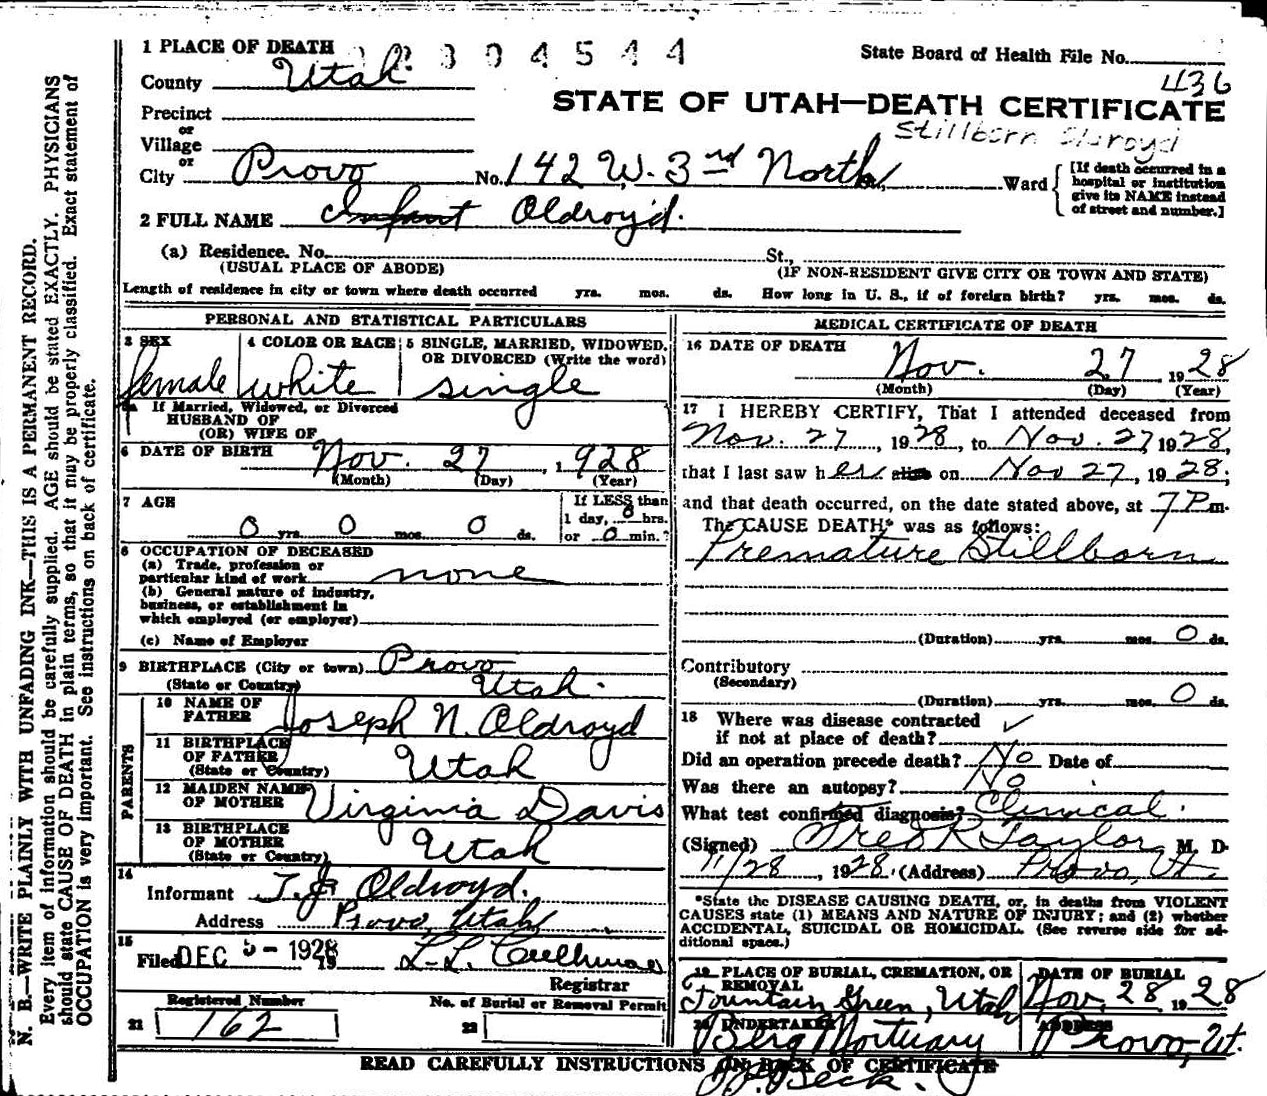 1 PLACE OF DEATH 2804544 State Board of Health File No.
County Utah 436
STATE OF UTAH—DEATH CERTIFICATE
Precinct
or
Village
or
Stillborn Oldroyd
City Provo No. 142 W. 3rd North, Ward [If death occurred in a hospital or institution give its NAME instead of street and number.]
2 FULL NAME Infant Oldroyd.
(a) Residence. No. St.,
(USUAL PLACE OF ABODE) (IF NON-RESIDENT GIVE CITY OR TOWN AND STATE)
Length of residence in city or town where death occurred yrs. mos. ds. How long in U. S., if of foreign birth? yrs. mos. ds.
PERSONAL AND STATISTICAL PARTICULARS
3 SEX 4 COLOR OR RACE 5 SINGLE, MARRIED, WIDOWED,
OR DIVORCED (Write the word)
female white single
5a If Married, Widowed, or Divorced
HUSBAND OF
(OR) WIFE OF
6 DATE OF BIRTH Nov. 27, 1928
(Month) (Day) (Year)
7 AGE If LESS than
1 day, 0 hrs.
0 yrs. 0 mos. 0 ds. or 0 min.?
8 OCCUPATION OF DECEASED
(a) Trade, profession or
particular kind of work none
(b) General nature of industry,
business, or establishment in
which employed (or employer)
(c) Name of Employer
9 BIRTHPLACE (City or town) Provo
(State or Country) Utah.
PARENTS
10 NAME OF
FATHER Joseph N. Oldroyd
11 BIRTHPLACE
OF FATHER Utah
(State or Country)
12 MAIDEN NAME
OF MOTHER Virginia Davis
13 BIRTHPLACE
OF MOTHER Utah
(State or Country)
14
Informant Oldroyd.
Address Provo, Utah
15
Filed DEC 5 - 1928 19 L. L.
Registrar
Registered Number No. of Burial or Removal Permit
21 162 22
MEDICAL CERTIFICATE OF DEATH
16 DATE OF DEATH
Nov. 27 1928
(Month) (Day) (Year)
17 I HEREBY CERTIFY, That I attended deceased from
Nov. 27, 1928, to Nov. 27, 1928,
that I last saw her alive on Nov 27, 1928;
and that death occurred, on the date stated above, at 7 P m.
The CAUSE DEATH,* was as follows:
Premature Stillborn
(Duration) yrs. mos. 0 ds.
Contributory
(Secondary)
(Duration) yrs. mos. 0 ds.
18 Where was disease contracted
if not at place of death? ✓
Did an operation precede death? No Date of
Was there an autopsy? No
What test confirmed diagnosis? Clinical.
(Signed) Fred R Taylor M. D.
11/28, 1928. (Address) Provo, Ut.
*State the DISEASE CAUSING DEATH, or, in deaths from VIOLENT
CAUSES state (1) MEANS AND NATURE OF INJURY; and (2) whether
ACCIDENTAL, SUICIDAL OR HOMICIDAL. (See reverse side for ad-
ditional space.)
19 PLACE OF BURIAL, CREMATION, OR DATE OF BURIAL
REMOVAL
Fountain Green, Utah Nov. 28 1928
20 UNDERTAKER ADDRESS
Berg Mortuary Provo, Ut.
READ CAREFULLY INSTRUCTIONS ON BACK OF CERTIFICATE
Beck.
N. B.—WRITE PLAINLY WITH UNFADING INK—THIS IS A PERMANENT RECORD.
Every item of information should be carefully supplied. AGE should be stated EXACTLY. PHYSICIANS
should state CAUSE OF DEATH in plain terms, so that it may be properly classified. Exact statement of
OCCUPATION is very important. See instructions on back of certificate.